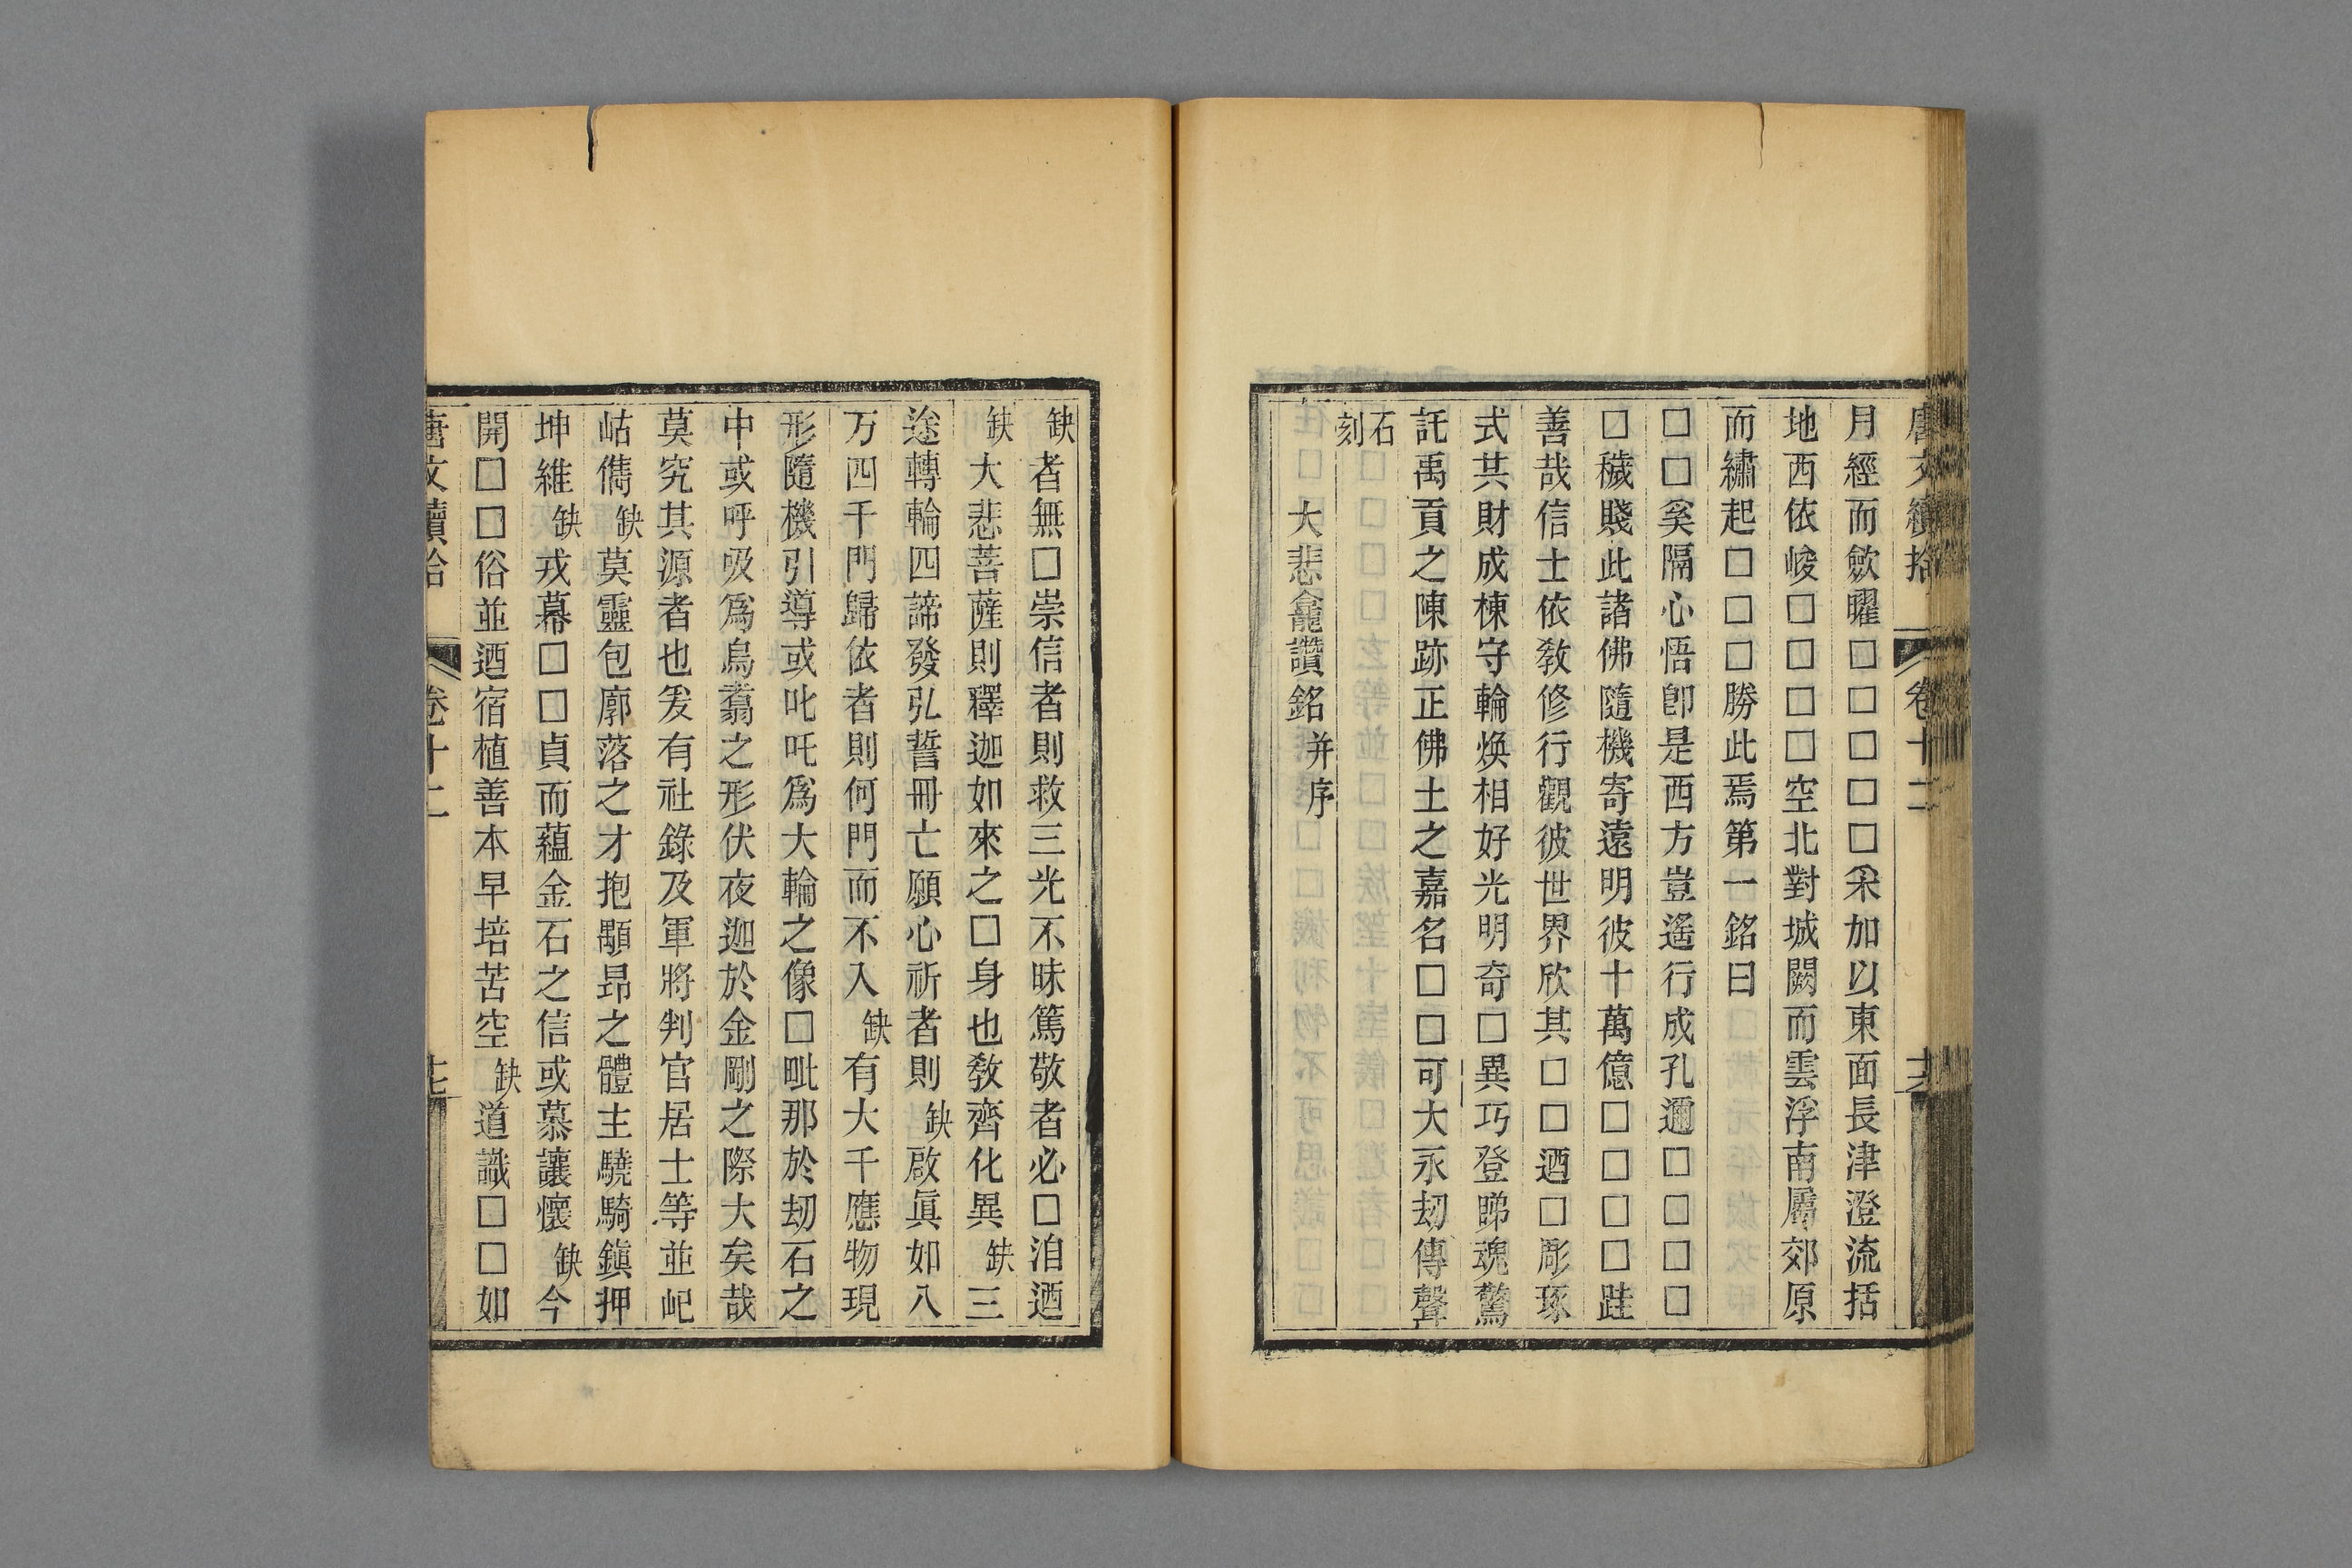 唐文續拾 卷十二 十六
月經而斂曜□□□□□采加以東面長津澄流括
地西依峻□□□□空北對城闕而雲浮南屬郊原
而繡起□□□勝此焉第一銘曰
□□奚隔心悟卽是西方豈遙行成孔邇□□□□
□穢賤此諸佛隨機寄遠明彼十萬億□□□□跬
善哉信士依敎修行觀彼世界欣其□□迺□彫琢
式共財成棟守輪煥相好光明奇□異巧登睇魂驚
託禹貢之陳跡正佛土之嘉名□□可大永刧傳聲
石刻
大悲龕讚銘并序
缺者無□崇信者則救三光不昧篤敬者必□洎迺
缺大悲菩薩則釋迦如來之□身也敎齊化異缺三
途轉輪四諦發弘誓冊亡願心祈者則缺啟眞如八
万四千門歸依者則何門而不入缺有大千應物現
形隨機引導或叱吒爲大輪之像□毗那於刧石之
中或呼吸爲鳥翥之形伏夜迦於金剛之際大矣哉
莫究其源者也爰有社錄及軍將判官居士等並屺
岵儁缺莫靈包廓落之才抱顒昂之體主驍騎鎭押
坤維缺戎幕□□貞而蘊金石之信或慕讓懷缺今
開□□俗並迺宿植善本早培苦空缺道識□□如
唐文續拾 卷十二 十七